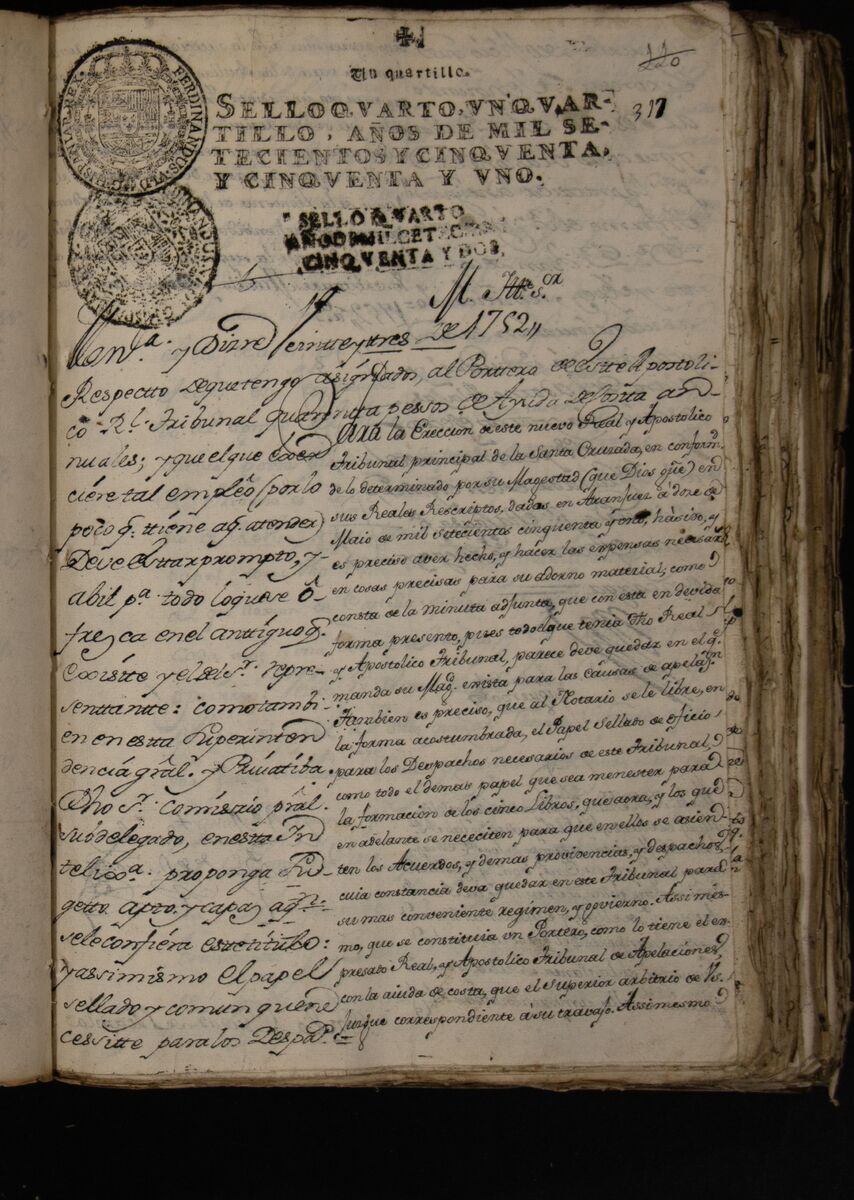 110
Un quartillo.
SELLO QVARTO, VN QVAR-
TILLO, AÑOS DE MIL SE-
TECIENTOS Y CINQVENTA,
Y CINQVENTA Y VNO.
317
FERDINANDUS VI D G HISPANIAR REX
SELLO QVARTO
AÑO D MIL CETEC
CINQVENTA Y DOS,
M. Ille s.or
y Dizre veinte y tres de 1752,,
Respecto de que tengo asignados, al Porttero de este Apostoli-
co Rl. Tribunal quarenta pessos de Ayuda de Costa an
nuales; y que el que exer
ciere tal empleo (por lo
poco q. ttiene aq. atender)
Deve esttar prompto, y
abil pa. todo lo que se ô-
fresca en el anttiguo q.
existte y el del sr. repre-
senttantte: como tambi-
en en estta Superinten
dencia gral. y Privatiba
Dho sr. comissario pral.
subdelegado, en estta In
telixa. proponga Su-
getto apto. y capaz aqn.
se le confiera este títtulo:
y assimismo el papel
sellado y comun que ne
cessitte para los Despa.s
Para la Ereccion de este nuevo Real y Apostolico
Tribunal principal de la Santa Cruzada, en conform.
de lo determinado por su Magestad (que Dios gûe) en
sus Reales Rescriptos, dados en Aranjuez â doze de
Maio de mil setecientos cinquenta y uno, hà sido, y
es preciso aver hecho, y hacer las expensas necesarâ
en cosas precisas para su adorno material, como
consta de la minuta adjunta, que con esta en devida
forma presento, pues todo el que tenia dho Real
y Apostolico Tribunal, parece deve quedar en el q.e
manda su Magd. exista para las Causas de apelan.
Tambien es preciso, que al Notario se le libre, en
la forma acostumbrada, el Papel sellado de oficio
para los Despachos necesarios de este Tribunal,
como todo el demas papel que sea menester para
la formacion de los cinco Libros, que aora, y los que
en adelante se nececiten para que en ellos se asien-
ten los Acuerdos, y demas providencias, y despachos,
cuia constancia deva quedar en este Tribunal para
su mas conveniente regimen, y govierno. Assimes-
mo, que se constituia vn Portero, como lo tiene el ex-
presado Real, y Apostolico Tribunal de Apelaciones,
con la aiuda de costa, que el superior arbitrio de Vs.
jusgue correspondiente â su travajo. Assimesmo